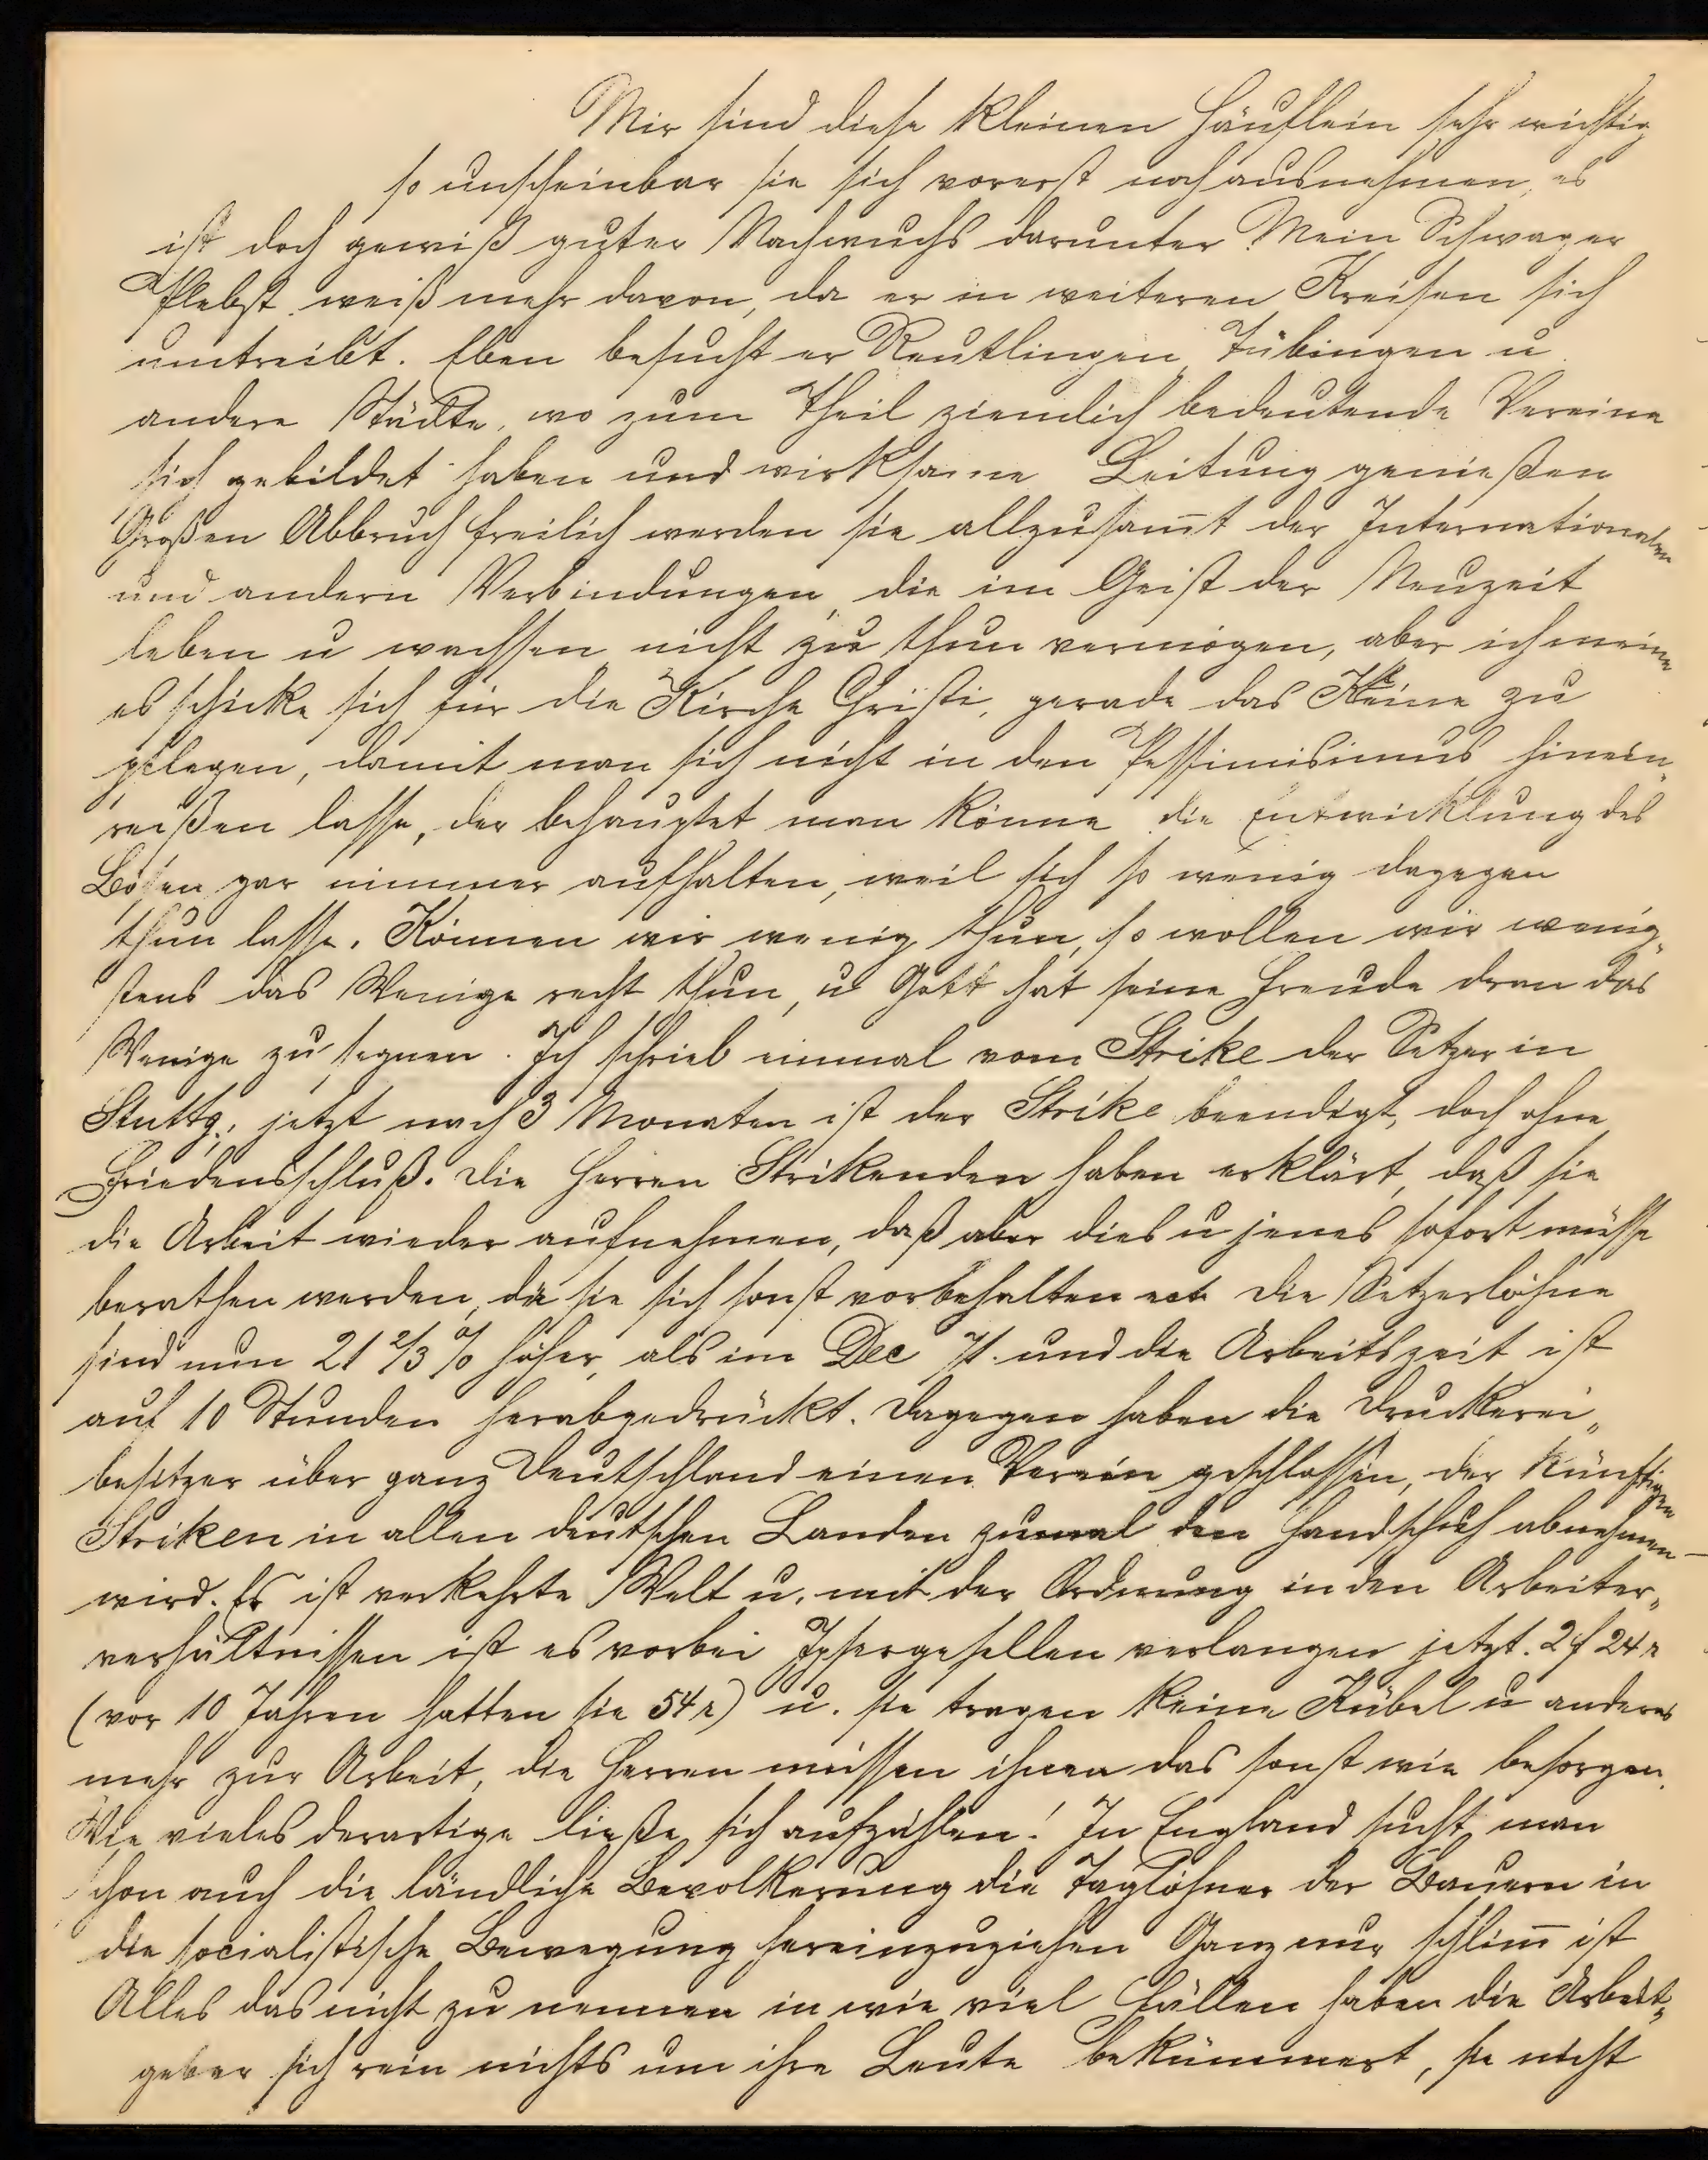 Mir sind diese kleinen Häuflein sehr wichtig
so unscheinbar sie sich vorerst noch ausnehmen, es
ist doch gewiß guter Nachwuchs darunter. Mein Schwager
Plebst weiß mehr davon, da er in weiteren Kreisen sich
umtreibt. Eben besucht er Reutlingen, Tübingen u.
andere Städte, wo zum Theil ziemlich bedeutende Vereine
sich gebildet haben und wirksame Leitung genießen
Großen Abbruch freilich werden sie allzusam̄t der Internationalen
und andern Verbindungen, die im Geist der Neuzeit
leben u wachsen nicht zu thun vermögen, aber ich meine
es schicke sich für die Kirche Christi, gerade das Kleine zu
pflegen, damit man sich nicht in den Pessimisimus hinein„
reißen lasse, der behauptet man könne die Entwicklung des
Bösen gar nimmer aufhalten, weil sich so wenig dagegen
thun lasse. Können wir wenig thun, so wollen wir wenig„
stens das Wenige recht thun, u Gott hat seine Freude dran das
Wenige zu segnen. Ich schrieb einmal vom Strike der Setzer in
Stuttg., jetzt nach 3 Monaten ist der Strike beendigt, doch ohne
Friedensschluß. Die Herren Strikenden haben erklärt, daß sie
die Arbeit wieder aufnehmen, daß aber dies u jenes sofort müsse
berathen werden, da sie sich sonst vorbehalten ect. Die Setzerlöhne
sind nun 21 2/3 % höher, als im Dec 71. und die Arbeitszeit ist
auf 10 Stunden herabgedrückt. Dagegen haben die Druckerei„
besitzer über ganz Deutschland einen Verein geschlossen, der künftigen
Striken in allen deutschen Landen zumal den Handschuh abnehmen
wird. Es ist verkehrte Welt u. mit der Ordnung in den Arbeiter„
verhältnissen ist es vorbei Ipsergesellen verlangen jetzt. 2 f 24 r
(vor 10 Jahren hatten sie 54 r) u. sie tragen keine Kübel u anderes
mehr zur Arbeit, die Herren müssen ihnen das sonst wie besorgen.
Wie vieles derartige ließe sich aufzählen! In England sucht man
schon auch die ländliche Bevolkerung die Taglöhner der Bauern in
die socialistische Bewegung hereinzuziehen Ganz nur schlim̄ ist
Alles das nicht zu nennen in wie viel Fällen haben die Arbeit„
geber sich rein nichts um ihre Leute bekümmert, sie nicht